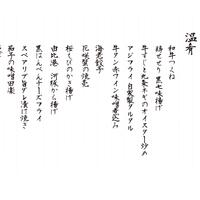 温肴
和牛つくね
鶏せせり 黒七味揚げ
牛すじと九条ネギのオイスター炒め
アジフライ 自家製タルタル
牛タン赤ワイン味噌煮込み
海老餃子
花咲蟹の焼売
桜えびのかき揚げ
由比港 河豚から揚げ
黒はんぺんチーズフライ
スペアリブ旨ダレ漬け焼き
茄子の味噌田楽